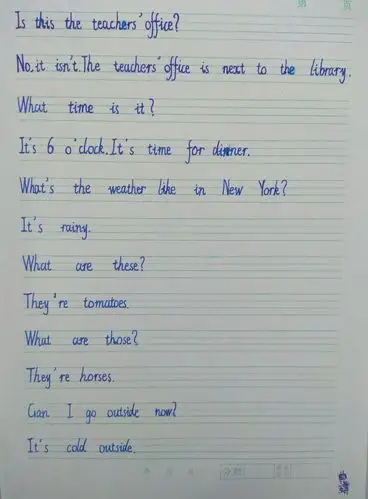 Is this the teachers' office?
No, it isn't. The teachers' office is next to the library.
What time is it?
It's 6 o'clock. It's time for dinner.
What's the weather like in New York?
It's rainy.
What are these?
They're tomatoes.
What are those?
They're horses.
Can I go outside now?
It's cold outside.